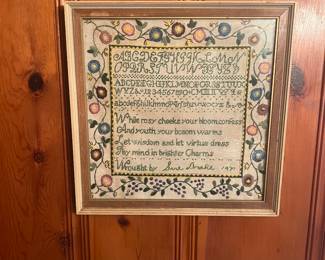 ABCDEFGHIJKLMN
OPQRSTUVWXYZ&
ABCDEFGHIJKLMNOPQRSTUV
WXYZ&1234567890
abcdefghijklmnopqrstuvwxyz&
While rosy cheeks your bloom confess
And youth your bosom warms
Let wisdom and let virtue dress
Thy mind in brighter Charms
Wrought by Sue Drake 1971